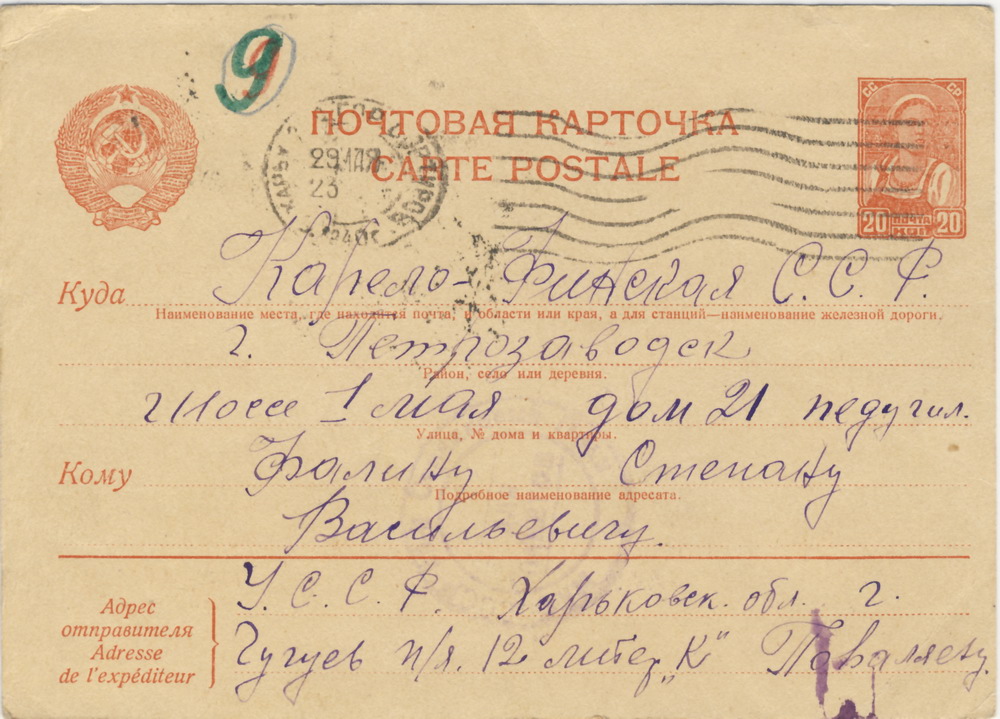 9
ПОЧТОВАЯ КАРТОЧКА
CARTE POSTALE
СС СР
20 ПОЧТА 20
КОП
29
23
Куда Карело-Финская С.С.Р.
Наименование места, где находится почта, и области или края, а для станций—наименование железной дороги.
г. Петрозаводск
Район, село или деревня.
Шоссе 1 мая дом 21 педучил.
Улица, № дома и квартиры.
Кому Фалину Степану
Подробное наименование адресата.
Васильевичу.
Адрес
отправителя
Adresse
de l'expéditeur
У.С.С.Р. Харьковск. обл. г.
Чугуев п/я. 12 литер „К"